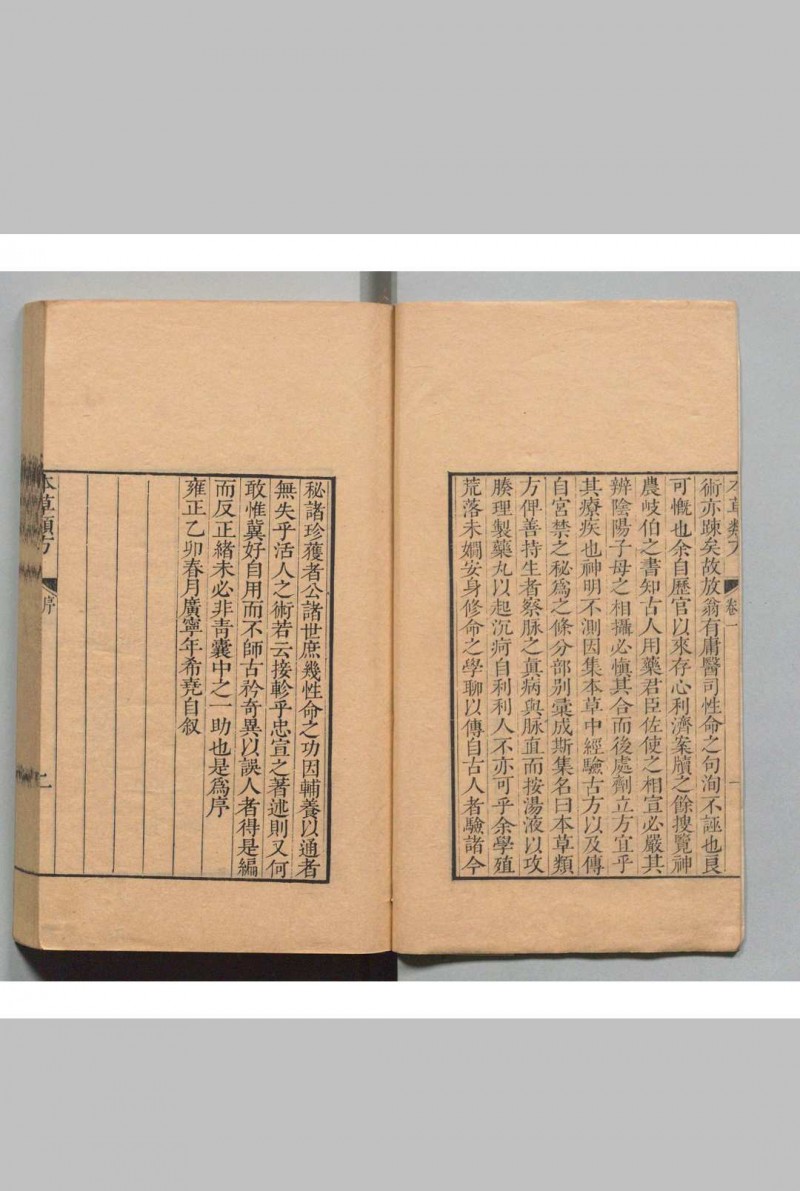 本草類方
卷一
一
術亦疎矣故放翁有庸醫司性命之句洵不誣也良
可慨也余自歷官以來存心利濟案牘之餘搜覽神
農岐伯之書知古人用藥君臣佐使之相宣必嚴其
辨陰陽子母之相攝必愼其合而後處劑立方宜乎
其療疾也神明不測因集本草中經驗古方以及傳
自宮禁之秘爲之條分部别彙成斯集名曰本草類
方俾善持生者察脉之眞病與脉直而按湯液以攻
腠理製藥丸以起沉疴自利利人不亦可乎余學殖
荒落未嫺安身修命之學聊以傳自古人者驗諸今
秘諸珍獲者公諸世庶幾性命之功因輔養以通者
無失乎活人之術若云接軫乎忠宣之著述則又何
敢惟冀好自用而不師古矜奇異以誤人者得是編
而反正緒未必非靑囊中之一助也是爲序
雍正乙卯春月廣寧年希堯自叙
本草類方
序